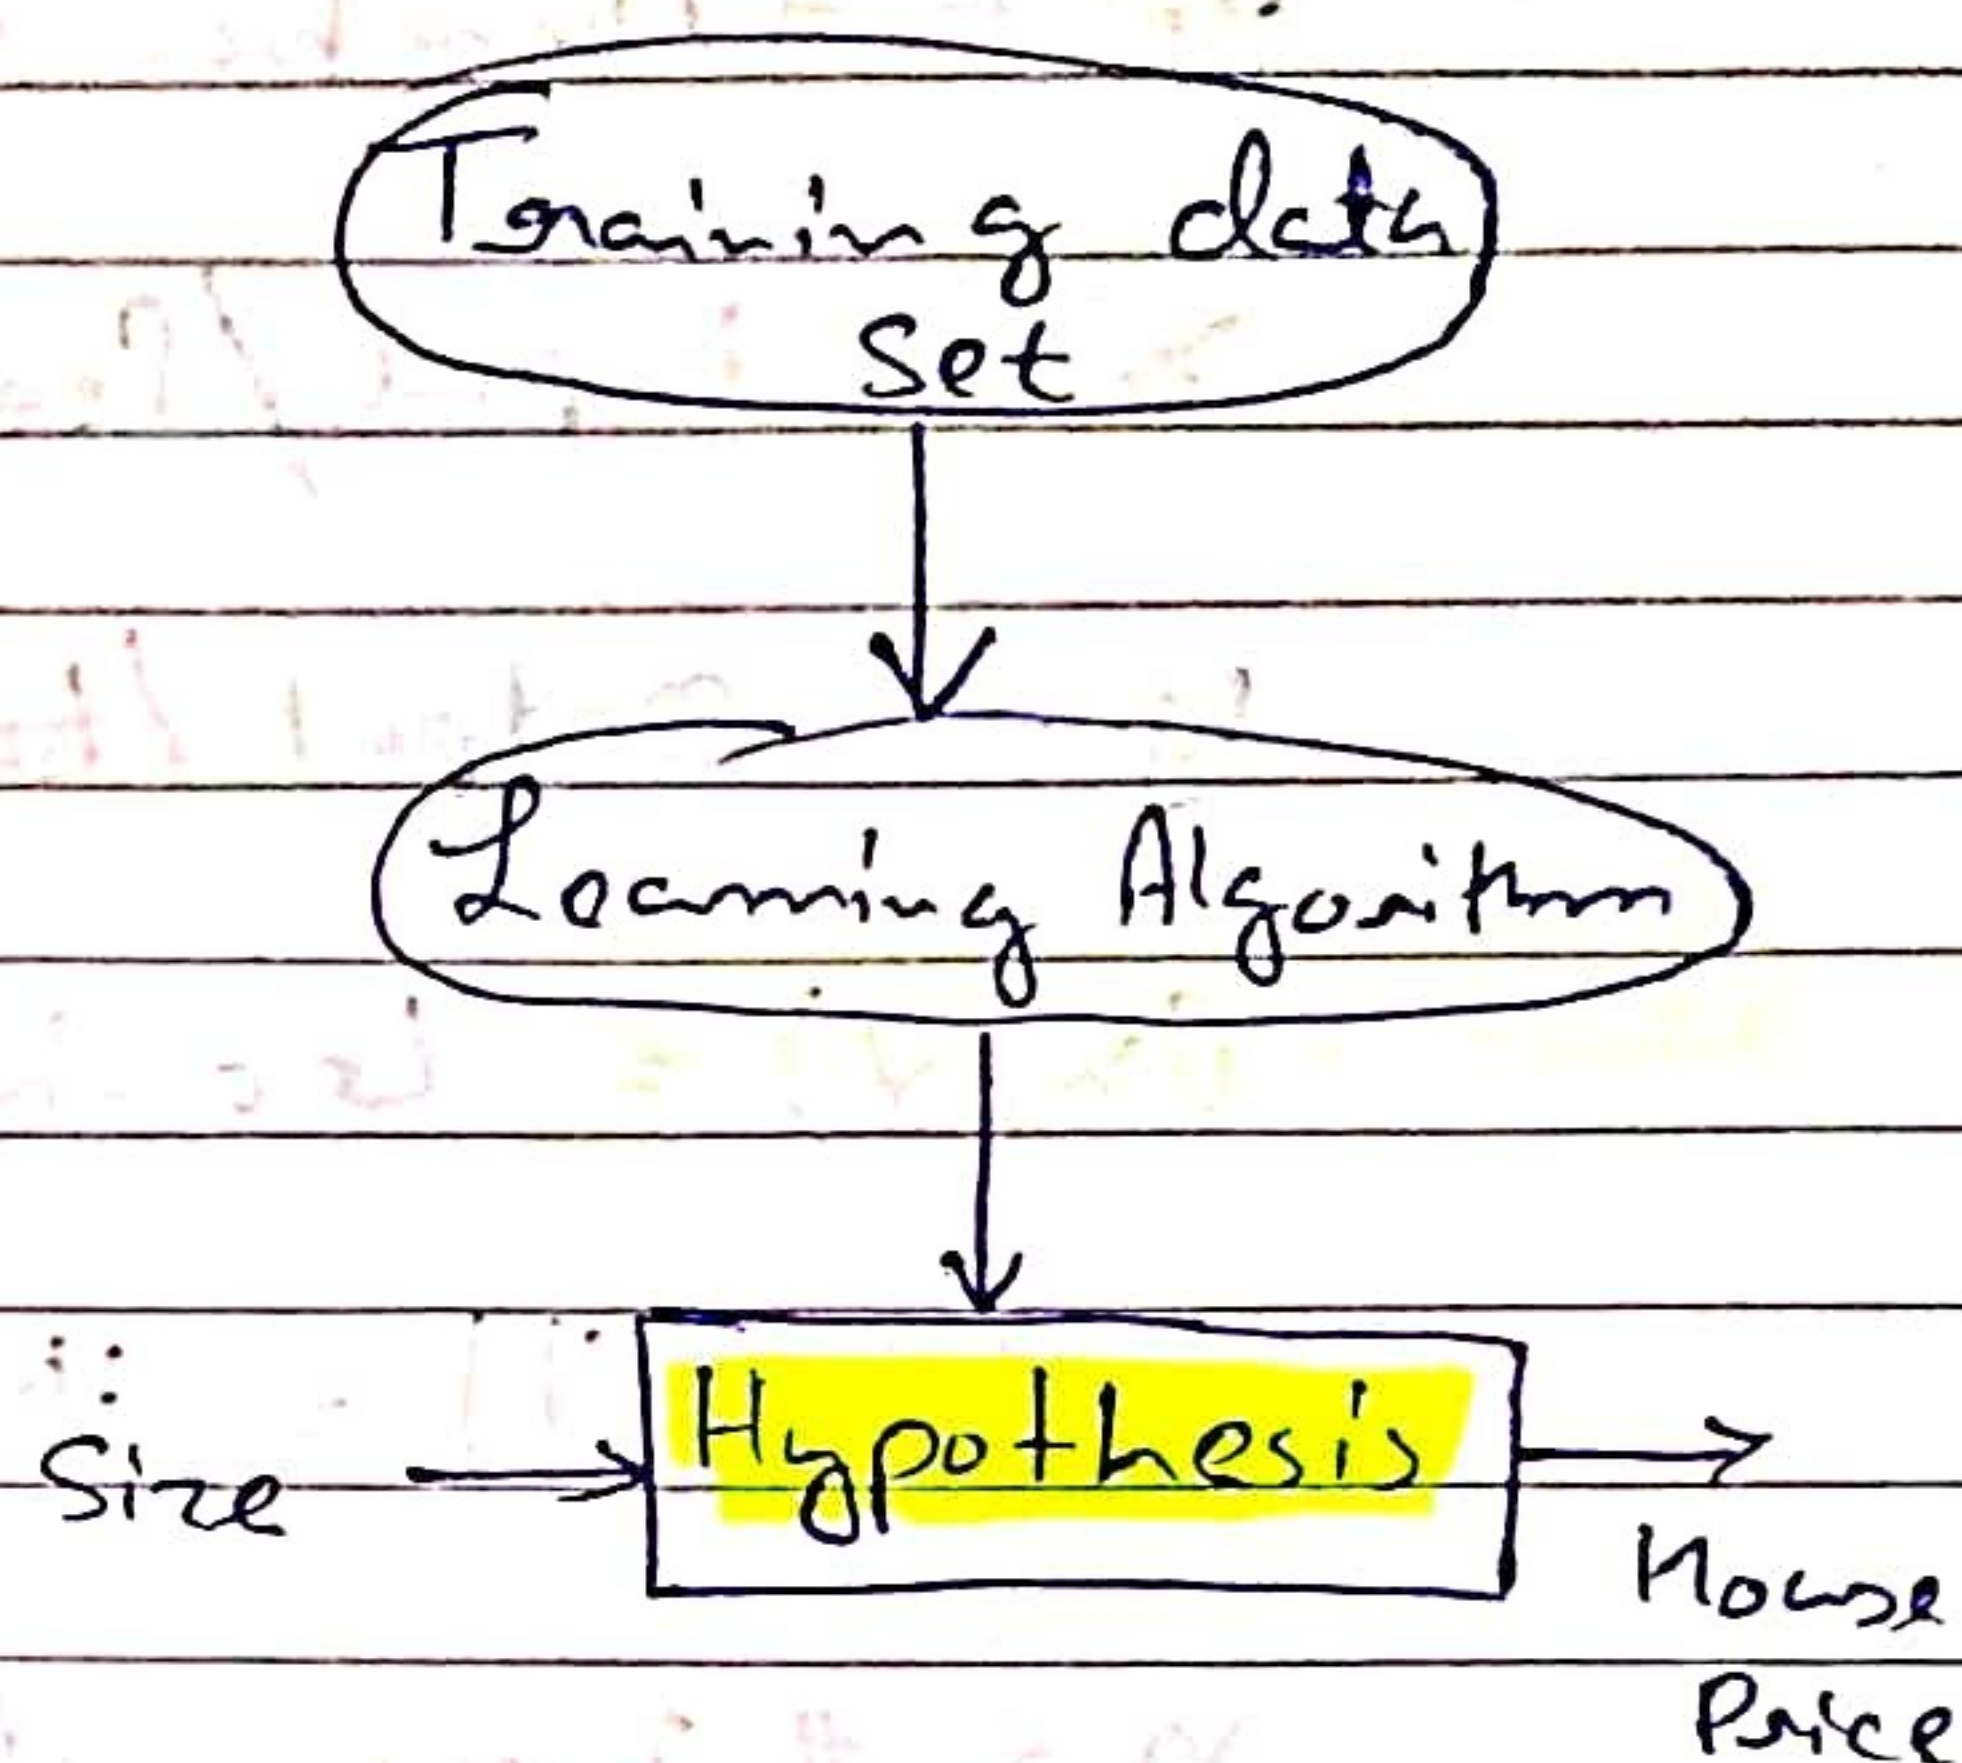 Training data
Set
Learning Algorithm
Size
Hypothesis
House
Price